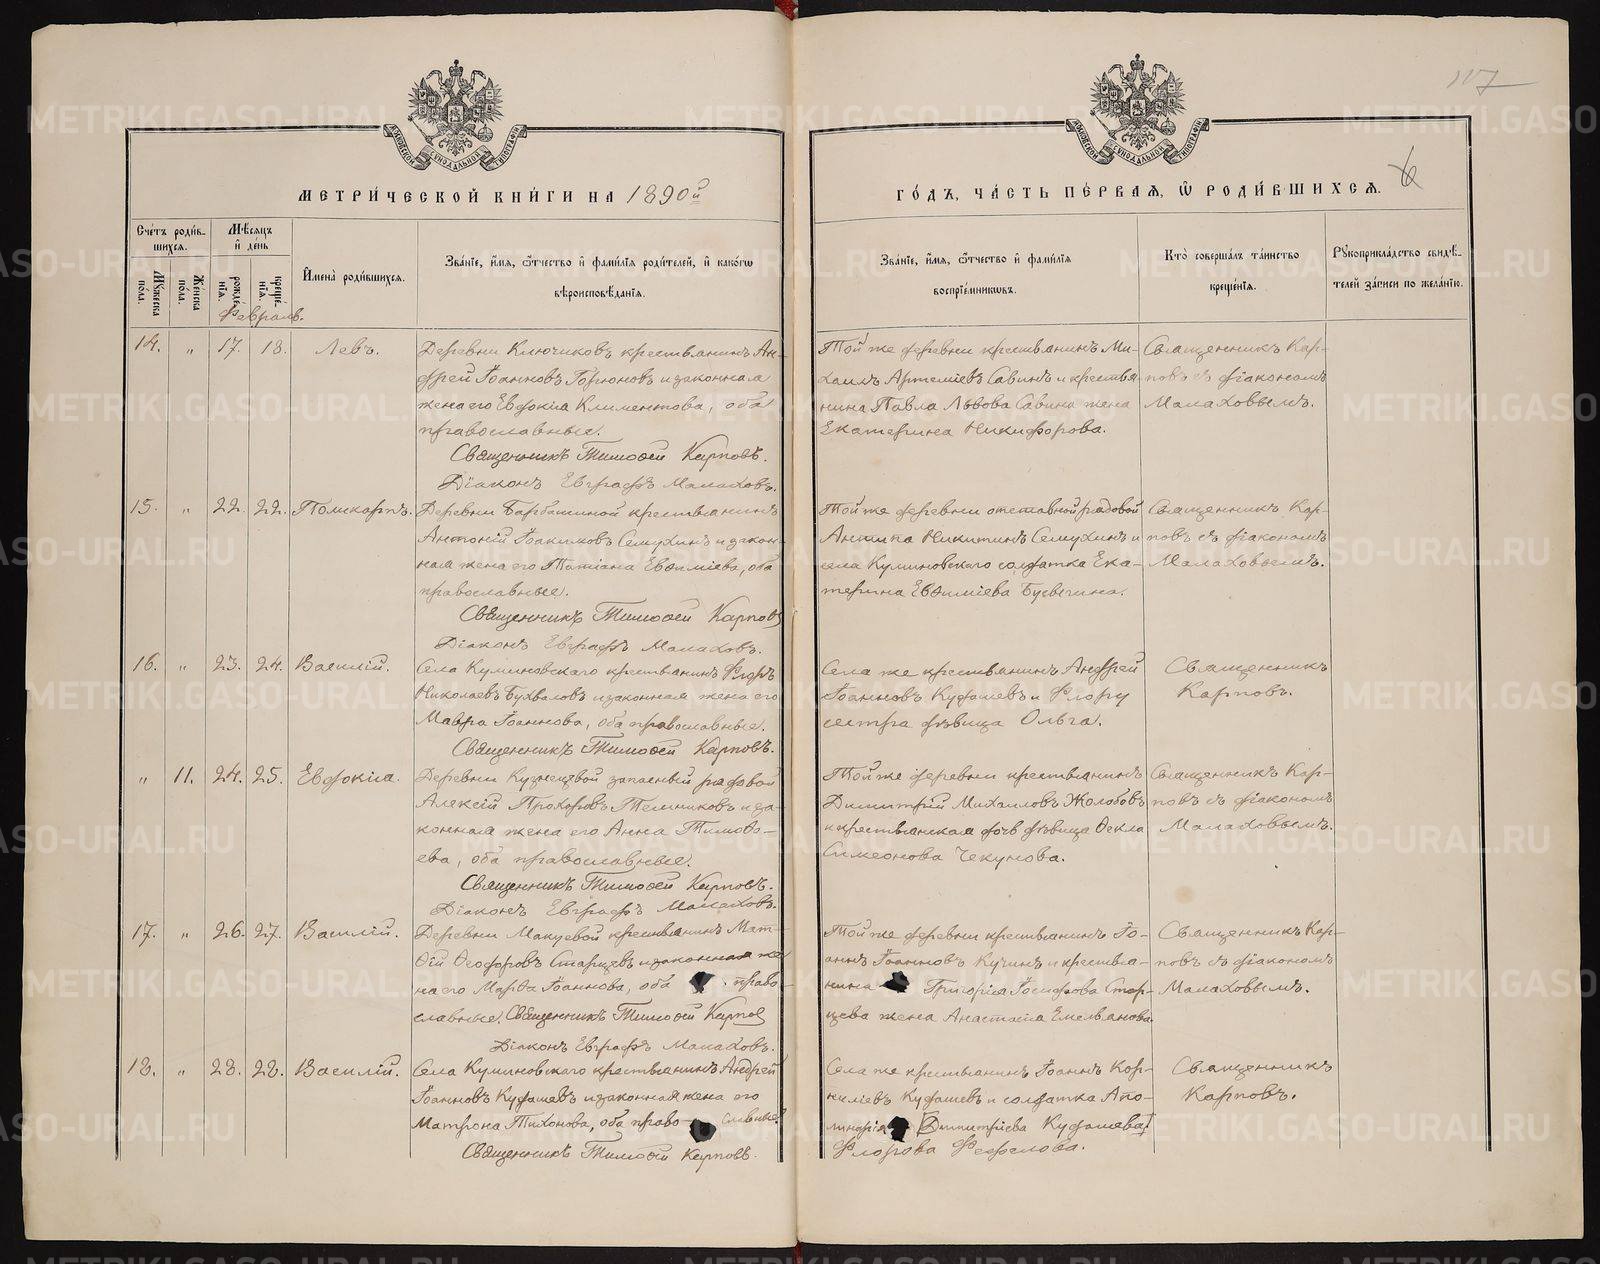 117
МЕТРИ́ЧЕСКОЙ КНИ́ГИ НА 1890й
ГО́ДЪ, ЧА́СТЬ ПЕ́РВАЯ, Ѡ РОДИ́ВШИХСЯ. 6
Сче́тъ роди́в-
шихся.
Мꙋ́жеска по́ла.
Же́нска по́ла.
Мѣ́сяцъ и҆ де́нь
рожде́нїя.
креще́нїя.
И҆мена̀ роди́вшихся.
Зва́нїе, и҆́мя, ѻ҆́тчество и҆ фами́лїя роди́телей, и҆ како́гѡ
вѣроисповѣ́данїя.
Зва́нїе, и҆́мя, ѻ҆́тчество и҆ фами́лїя
воспрїе́мникѡвъ.
Кто̀ соверша́лъ та́инство
креще́нїя.
Рꙋкоприкла́дство свидѣ́-
телей за́писи по жела́нїю.
Февраль.
14. " 17. 18. Левъ.
Деревни Ключиковъ крестьянинъ Ан-
дрей Іоанновъ Горюновъ и законная
жена его Евдокіа Климентова, оба
православные.
Священникъ Тимоѳей Карповъ.
Діаконъ Евграфъ Малаховъ.
Той же деревни крестьянинъ Ми-
хаилъ Артеміевъ Савинъ и крестья-
нина Павла Львова Савина жена
Екатерина Никифорова.
Священникъ Кар-
повъ съ діакономъ
Малаховымъ.
15. " 22. 22. Поликарпъ.
Деревни Барбашиной крестьянинъ
Антоній Іоакимовъ Семухинъ и закон-
ная жена его Татіана Евѳиміева, оба
православные.
Священникъ Тимоѳей Карповъ
Діаконъ Евграфъ Малаховъ.
Той же деревни отставной рядовой
Антипа Никитинъ Семухинъ и
села Куминовскаго солдатка Ека-
терина Евѳиміева Бусыгина.
Священникъ Кар-
повъ съ діакономъ
Малаховымъ.
16. " 23. 24. Василій.
Села Куминовскаго крестьянинъ Флоръ
Николаевъ Бухваловъ и законная жена его
Мавра Іоаннова, оба православные.
Священникъ Тимоѳей Карповъ.
Села же крестьянинъ Андрей
Іоанновъ Кудашевъ и Флору
сестра дѣвица Ольга.
Священникъ
Карповъ.
" 11. 24. 25. Евдокіа.
Деревни Кузнецовой запасный рядовой
Алексій Прохоровъ Темниковъ и за-
конная жена его Анна Тимоѳе-
ева, оба православные.
Священникъ Тимоѳей Карповъ.
Діаконъ Евграфъ Малаховъ.
Той же деревни крестьянинъ
Димитрій Михаиловъ Жолобовъ
и крестьянская дочь дѣвица Ѳекла
Симеонова Чекунова.
Священникъ Кар-
повъ съ діакономъ
Малаховымъ.
17. " 26. 27. Василій.
Деревни Макуевой крестьянинъ Мат-
ѳій Ѳеодоровъ Старцевъ и законная же-
на его Марѳа Іоаннова, оба право-
славные. Священникъ Тимоѳей Карповъ
Діаконъ Евграфъ Малаховъ.
Той же деревни крестьянинъ Іо-
аннъ Іоанновъ Кучинъ и крестья-
нина Григорія Іосифова Стар-
цева жена Анастасіа Емельянова.
Священникъ Кар-
повъ съ діакономъ
Малаховымъ.
18. " 28. 28. Василій.
Села Куминовскаго крестьянинъ Андрей
Іоанновъ Кудашевъ и законная жена его
Матрона Тихонова, оба православные.
Священникъ Тимоѳей Карповъ.
Села же крестьянинъ Іоаннъ Кор-
ниліевъ Кудашевъ и солдатка Апо-
линарія Димитріева Кудашева
Флорова Фефелова.
Священникъ
Карповъ.
METRIKI.GASO-URAL.RU